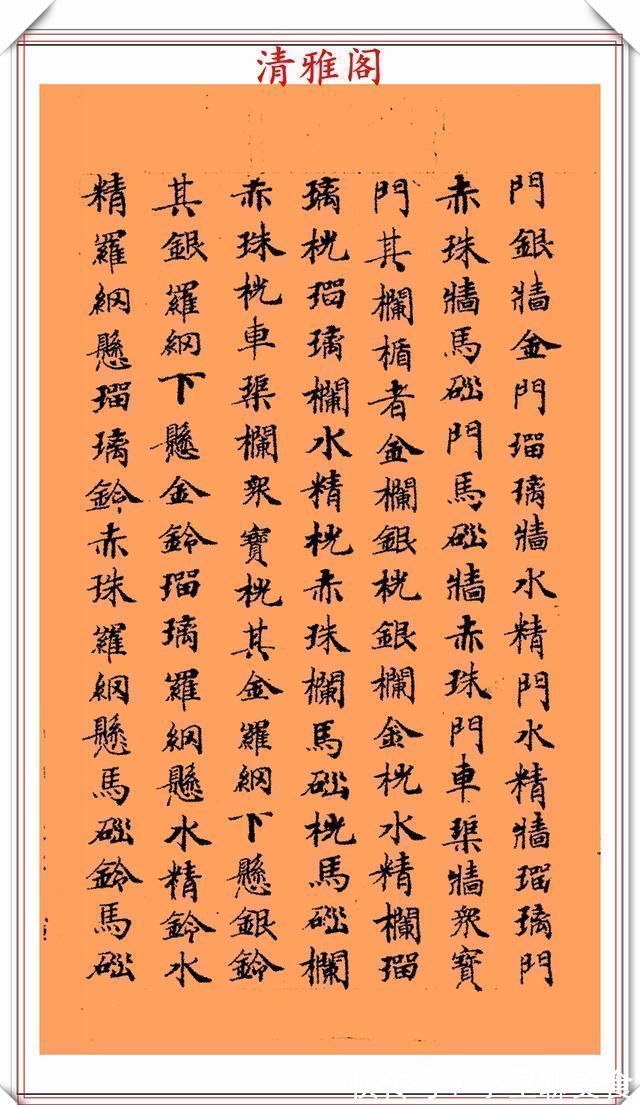 清雅阁
門銀牆金門瑠璃牆水精門水精牆瑠璃門
赤珠牆馬碯門馬碯牆赤珠門車渠牆衆寶
門其欄楯者金欄銀桄銀欄金桄水精欄瑠
璃桄瑠璃欄水精桄赤珠欄馬碯桄馬碯欄
赤珠桄車渠欄衆寶桄其金羅網下懸銀鈴
其銀羅網下懸金鈴瑠璃羅網懸水精鈴水
精羅網懸瑠璃鈴赤珠羅網懸馬碯鈴馬碯